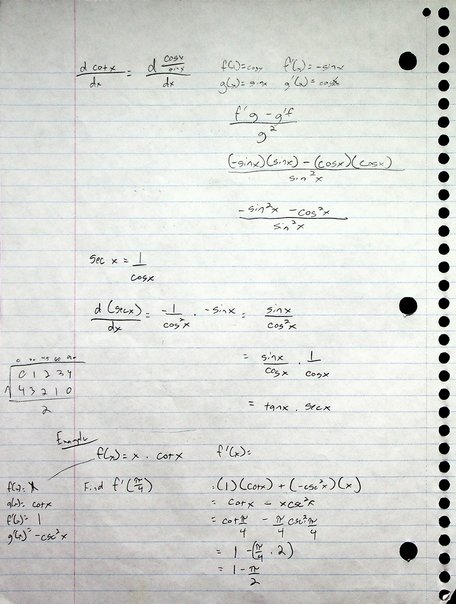 d cotx/dx = d (cosx/sinx)/dx f(x)=cosx f'(x)=-sinx
g(x)=sinx g'(x)=cosx
f'g - g'f / g²
(-sinx)(sinx) - (cosx)(cosx) / sin²x
-sin²x - cos²x / sin²x
sec x = 1/cosx
d(secx)/dx = -1/cos²x · -sinx = sinx/cos²x
= sinx/cosx · 1/cosx
= tanx · secx
0 30 45 60 90
0 1 2 3 4
√ 4 3 2 1 0
2
Example
f(x) = x · cotx f'(x)=
f(x)= x Find f'(π/4) = (1)(cotx) + (-csc²x)(x)
g(x)= cotx = cotx - xcsc²x
f'(x)= 1 = cot π/4 - π/4 csc² π/4
g'(x)= -csc²x
= 1 - (π/4 · 2)
= 1 - π/2